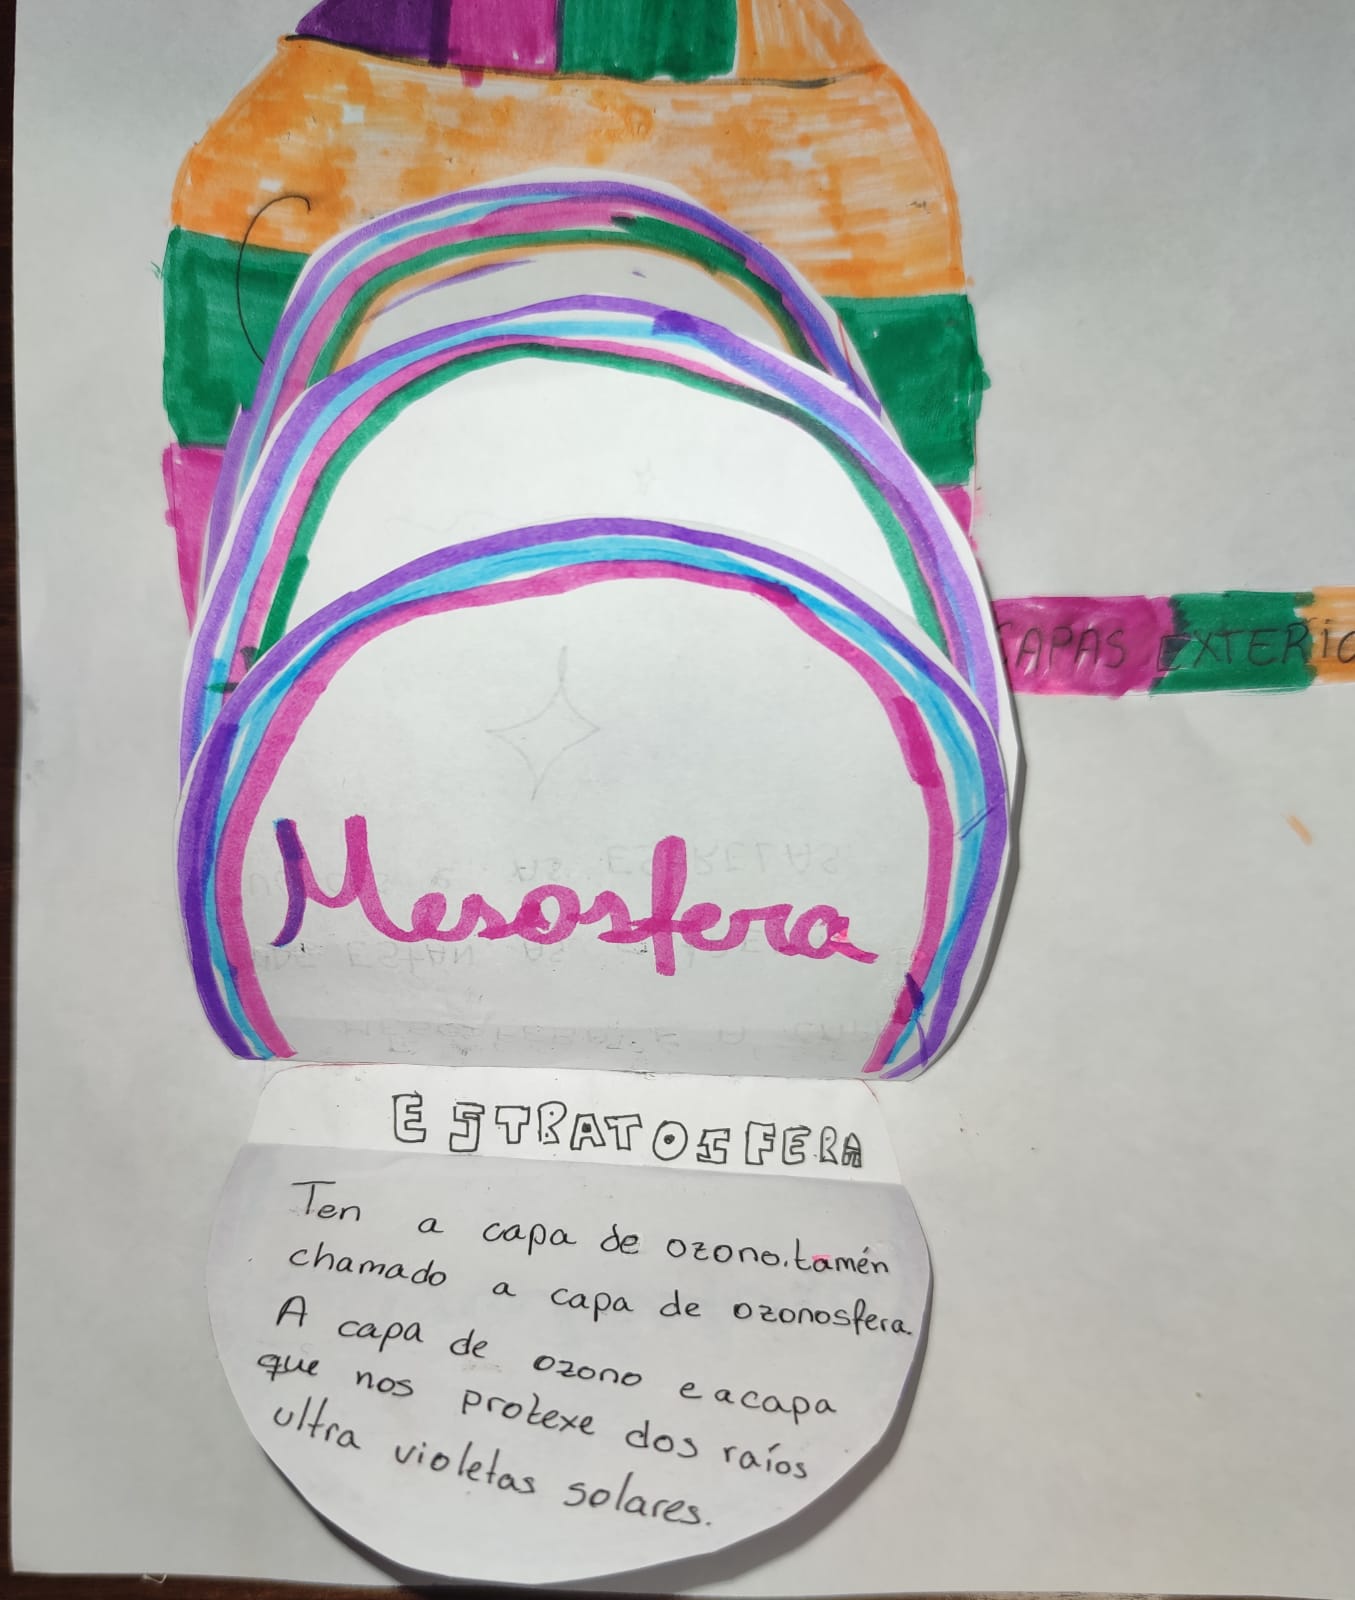 CAPAS EXTERIO
Mesosfera
ESTRATOSFERA
Ten a capa de ozono.tamén
chamado a capa de ozonosfera.
A capa de ozono e a capa
que nos protexe dos raíos
ultra violetas solares.